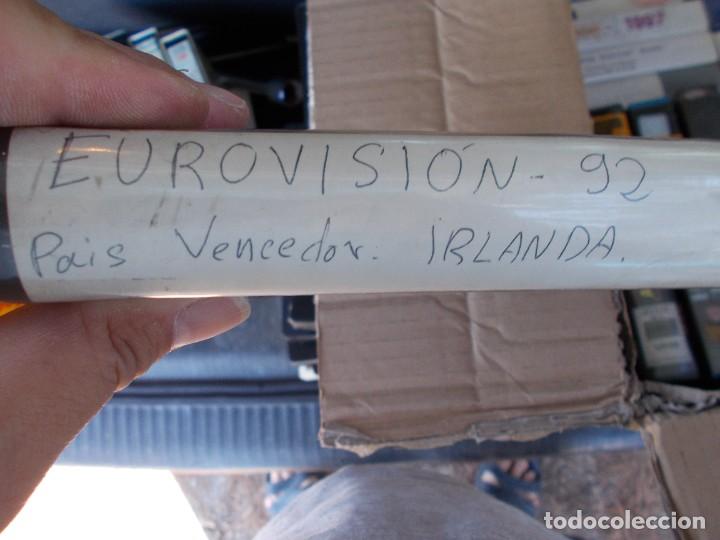 1997
EUROVISIÓN - 92
Pais Vencedor. IRLANDA.
todocoleccion